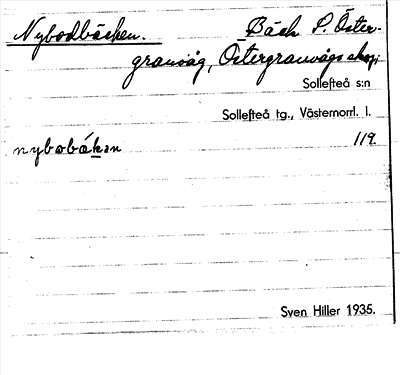 Nybodbäcken. Bäck S. Öster-
granvåg, Östergranvågs skog;
Sollefteå s:n
Sollefteå tg., Västernorrl. l.
nybobäkan 119.
Sven Hiller 1935.